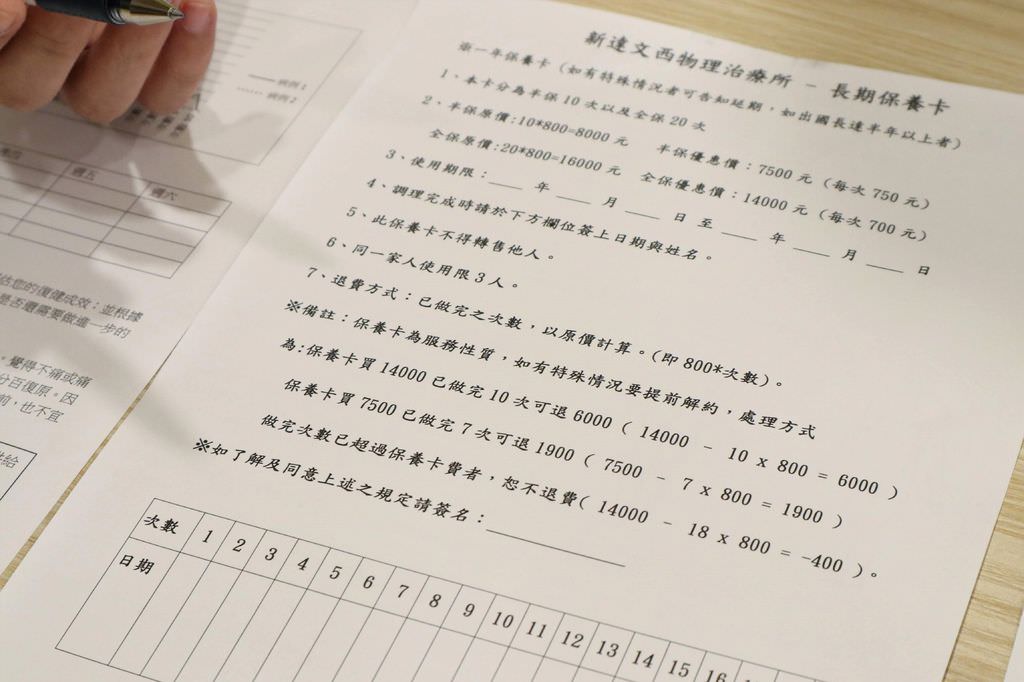 新達文西物理治療所 – 長期保養卡
第一年保養卡 (如有特殊情況者可告知延期，如出國長達半年以上者)
1、本卡分為半保 10 次以及全保 20 次
2、半保原價:10*800=8000 元 半保優惠價：7500 元 (每次 750 元)
全保原價:20*800=16000 元 全保優惠價：14000 元 (每次 700 元)
3、使用期限：___ 年 ___ 月 ___ 日 至 ___ 年 ___ 月 ___ 日
4、調理完成時請於下方欄位簽上日期與姓名。
5、此保養卡不得轉售他人。
6、同一家人使用限 3 人。
7、退費方式：已做完之次數，以原價計算。(即 800*次數)。
※備註：保養卡為服務性質，如有特殊情況要提前解約，處理方式
為:保養卡買 14000 已做完 10 次可退 6000 ( 14000 - 10 x 800 = 6000 )
保養卡買 7500 已做完 7 次可退 1900 ( 7500 - 7 x 800 = 1900 )
做完次數已超過保養卡費者，恕不退費( 14000 - 18 x 800 = -400 )。
※如了解及同意上述之規定請簽名：
次數 1 2 3 4 5 6 7 8 9 10 11 12 13 14 15 16
日期
病例 1
病例 2
週五 週六
估您的復健成效；並根據
是否還需要做進一步的
，覺得不痛或痛
分百復原。因
前，也不宜